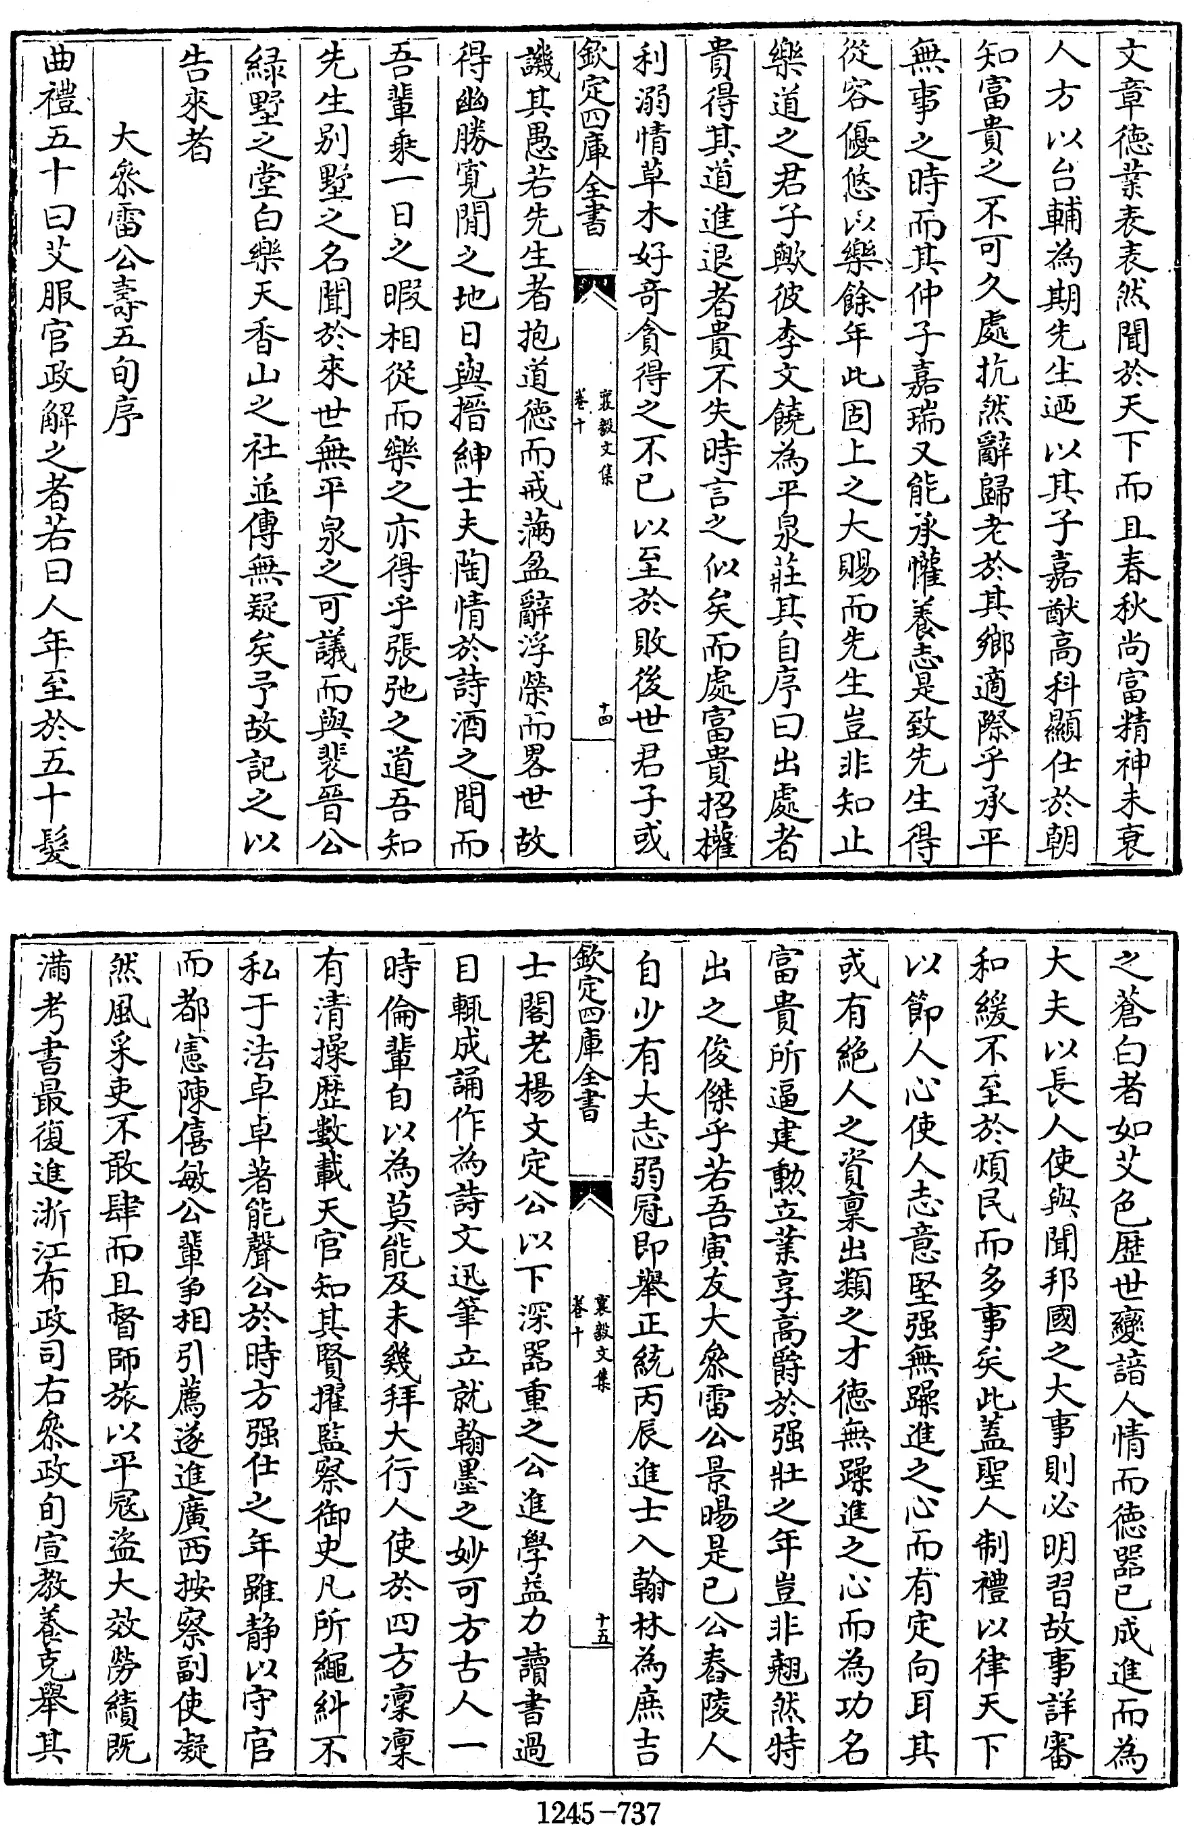 文章德業表表然聞於天下而且春秋尚富精神未衰
人方以台輔為期先生迺以其子嘉猷高科顯仕於朝
知富貴之不可久處抗然辭歸老於其鄉適際乎承平
無事之時而其仲子嘉瑞又能承懽養志是致先生得
從容優悠以樂餘年此固上之大賜而先生豈非知止
樂道之君子歟彼李文饒為平泉莊其自序曰出處者
貴得其道進退者貴不失時言之似矣而處富貴招權
利溺情草木好奇貪得之不已以至於敗後世君子或
欽定四庫全書
襄毅文集
卷十
十四
譏其愚若先生者抱道德而戒滿盈辭浮榮而畧世故
得幽勝寛閒之地日與搢紳士夫陶情於詩酒之間而
吾輩乗一日之暇相從而樂之亦得乎張弛之道吾知
先生别墅之名聞於來世無平泉之可議而與裴晉公
緑墅之堂白樂天香山之社並傳無疑矣予故記之以
告來者
大叅雷公壽五旬序
曲禮五十曰艾服官政解之者若曰人年至於五十髮
之蒼白者如艾色歴世變諳人情而德器已成進而為
大夫以長人使與聞邦國之大事則必明習故事詳審
和緩不至於煩民而多事矣此蓋聖人制禮以律天下
以節人心使人志意堅强無躁進之心而有定向耳其
或有絶人之資稟出類之才德無躁進之心而為功名
富貴所逼建勲立業享高爵於强壯之年豈非翹然特
出之俊傑乎若吾寅友大叅雷公景暘是已公舂陵人
自少有大志弱冠即舉正統丙辰進士入翰林為庶吉
欽定四庫全書
襄毅文集
卷十
十五
士閣老楊文定公以下深器重之公進學益力讀書過
目輒成誦作為詩文迅筆立就翰墨之妙可方古人一
時倫輩自以為莫能及未幾拜大行人使於四方凜凜
有清操歴數載天官知其賢擢監察御史凡所繩糾不
私于法卓卓著能聲公於時方强仕之年雖静以守官
而都憲陳僖敏公輩争相引薦遂進廣西按察副使凝
然風采吏不敢肆而且督師旅以平寇盜大效勞績既
滿考書最復進浙江布政司右叅政旬宣教養克舉其
1245-737